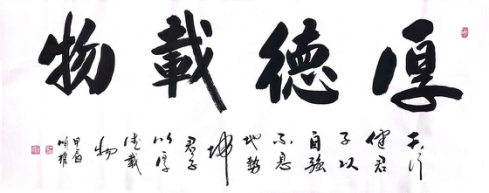 厚德載物
天行
健君
子以
自強
不息
地勢
坤
君子
以厚
德載
物
甲辰